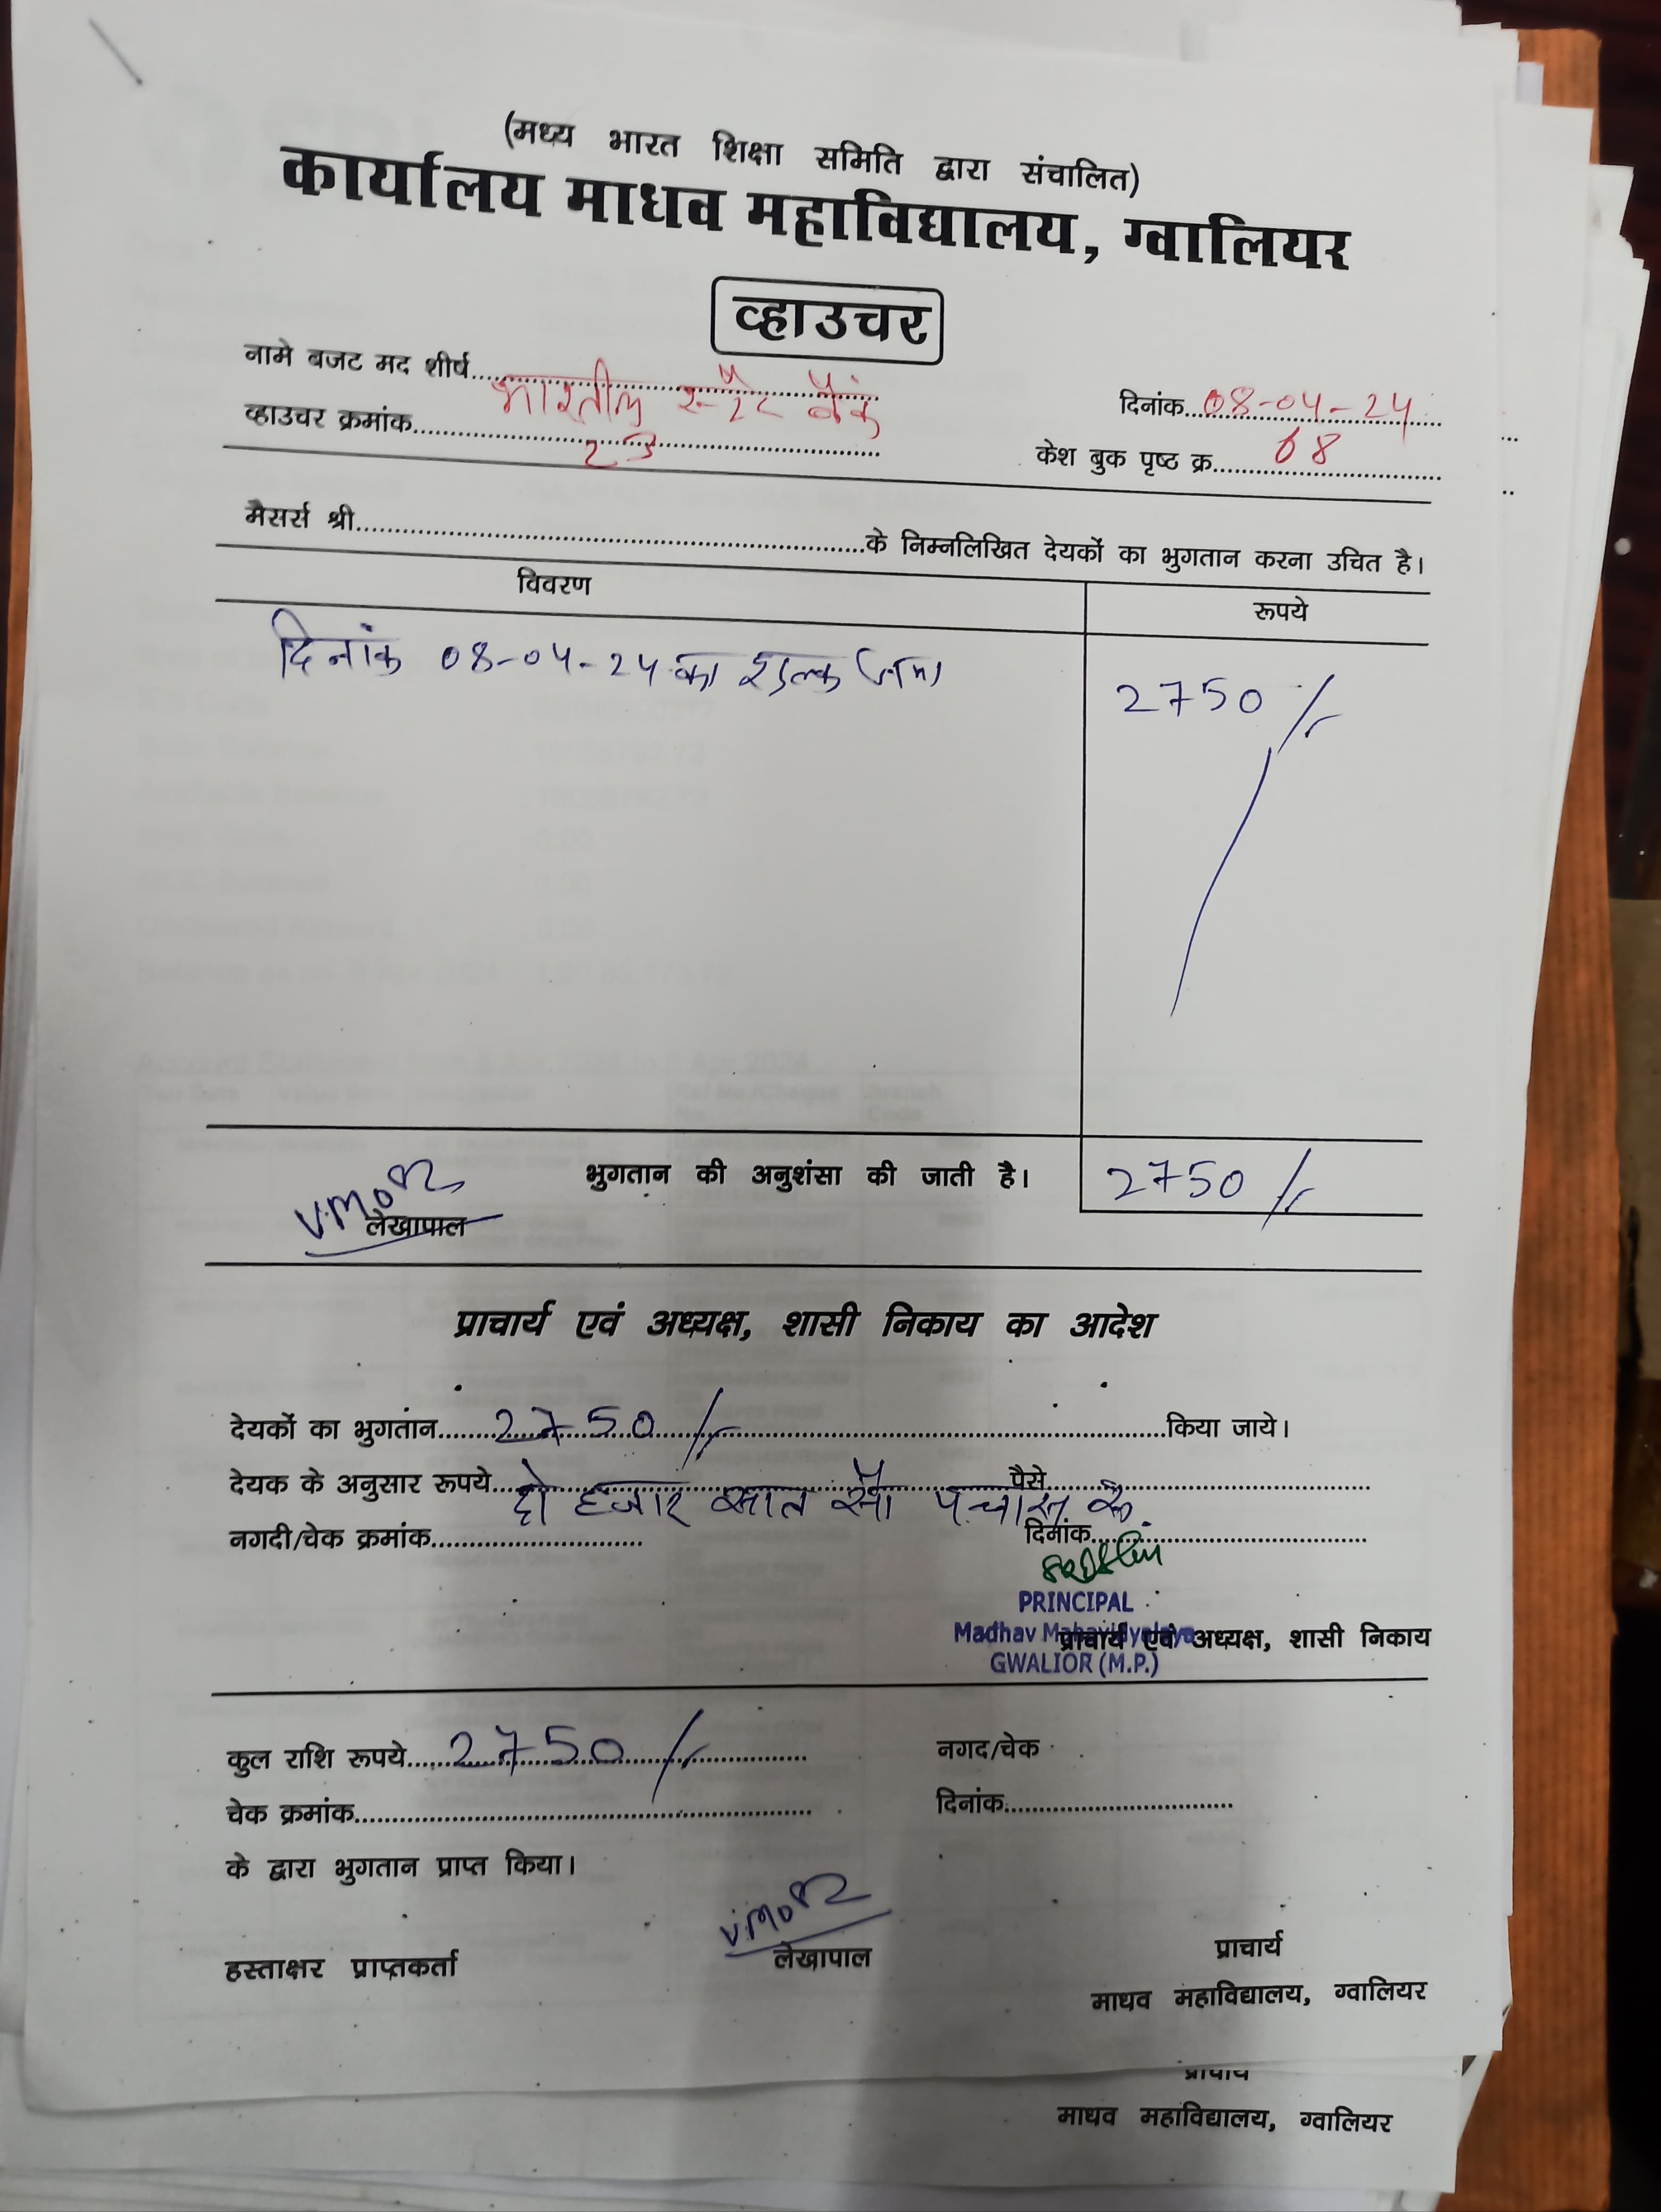 (मध्य भारत शिक्षा समिति द्वारा संचालित)
कार्यालय माधव महाविद्यालय, ग्वालियर
व्हाउचर
नामे बजट मद शीर्ष.......... भारतीय स्टेट बैंक
दिनांक.......... 08-04-24
व्हाउचर क्रमांक.......... 23
केश बुक पृष्ठ क्र.......... 08
मैसर्स श्री..........के निम्नलिखित देयकों का भुगतान करना उचित है।
विवरण रूपये
दिनांक 08-04-24 का शुल्क जमा 2750/-
भुगतान की अनुशंसा की जाती है। 2750/-
लेखापाल
प्राचार्य एवं अध्यक्ष, शासी निकाय का आदेश
देयकों का भुगतान.......... 2750/- ..........किया जाये।
देयक के अनुसार रूपये.......... दो हजार सात सौ पचास रू. पैसे..........
नगदी/चेक क्रमांक.......... दिनांक..........
PRINCIPAL
Madhav Mahavidyalaya
GWALIOR (M.P.)
प्राचार्य एवं अध्यक्ष, शासी निकाय
कुल राशि रूपये.......... 2750/- नगद/चेक
चेक क्रमांक.......... दिनांक..........
के द्वारा भुगतान प्राप्त किया।
हस्ताक्षर प्राप्तकर्ता लेखापाल प्राचार्य
माधव महाविद्यालय, ग्वालियर
प्राचार्य
माधव महाविद्यालय, ग्वालियर